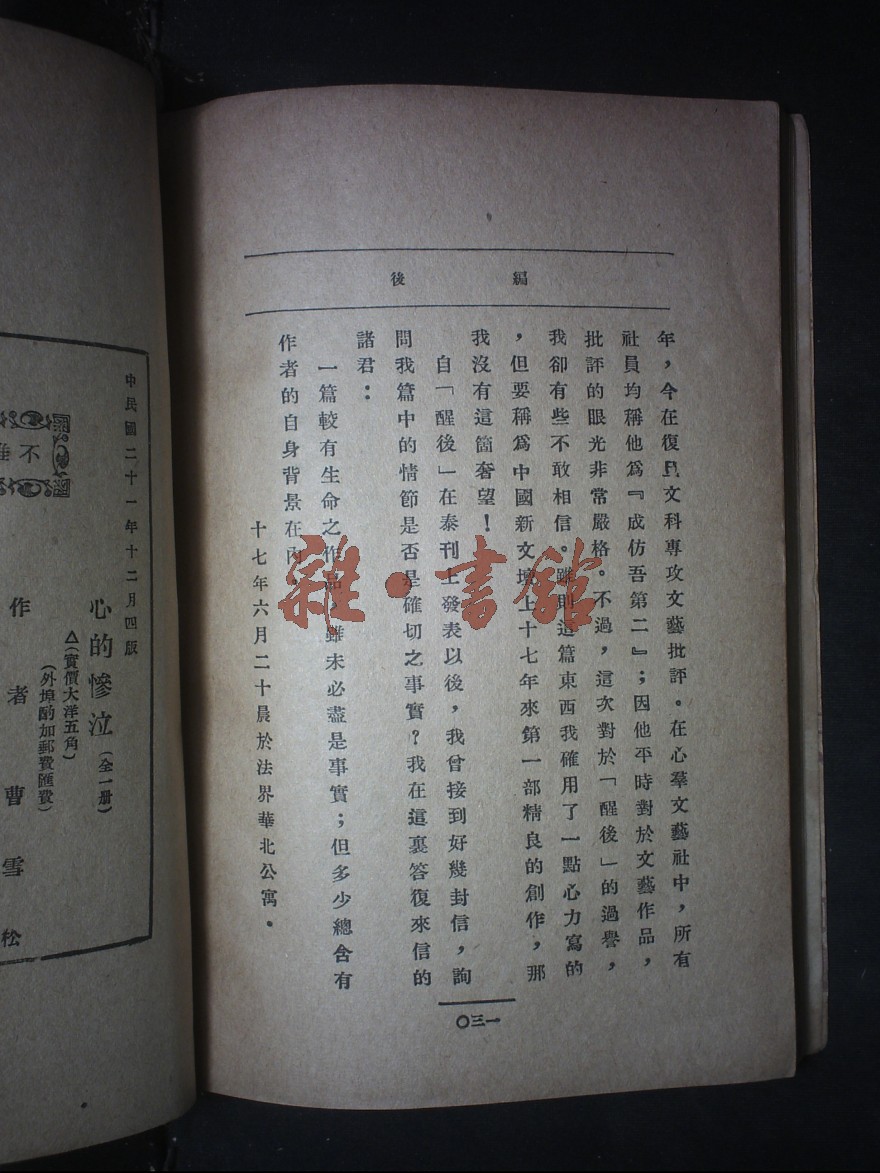 編後
年，今在復旦文科專攻文藝批評。在心羣文藝社中，所有
社員均稱他爲『成仿吾第二』；因他平時對於文藝作品，
批評的眼光非常嚴格。不過，這次對於「醒後」的過譽，
我卻有些不敢相信。雖則這篇東西我確用了一點心力寫的
，但要稱爲中國新文壇上十七年來第一部精良的創作，那
我沒有這箇奢望！
自「醒後」在泰刊上發表以後，我曾接到好幾封信，詢
問我篇中的情節是否是確切之事實？我在這裏答復來信的
諸君：
一篇較有生命之作品，雖未必盡是事實；但多少總含有
作者的自身背景在內
十七年六月二十晨於法界華北公寓。
一三〇
雜·書館
中民國二十一年十二月四版
心的慘泣（全一册）
△（實價大洋五角）
（外埠酌加郵費匯費）
作者曹雪松
不